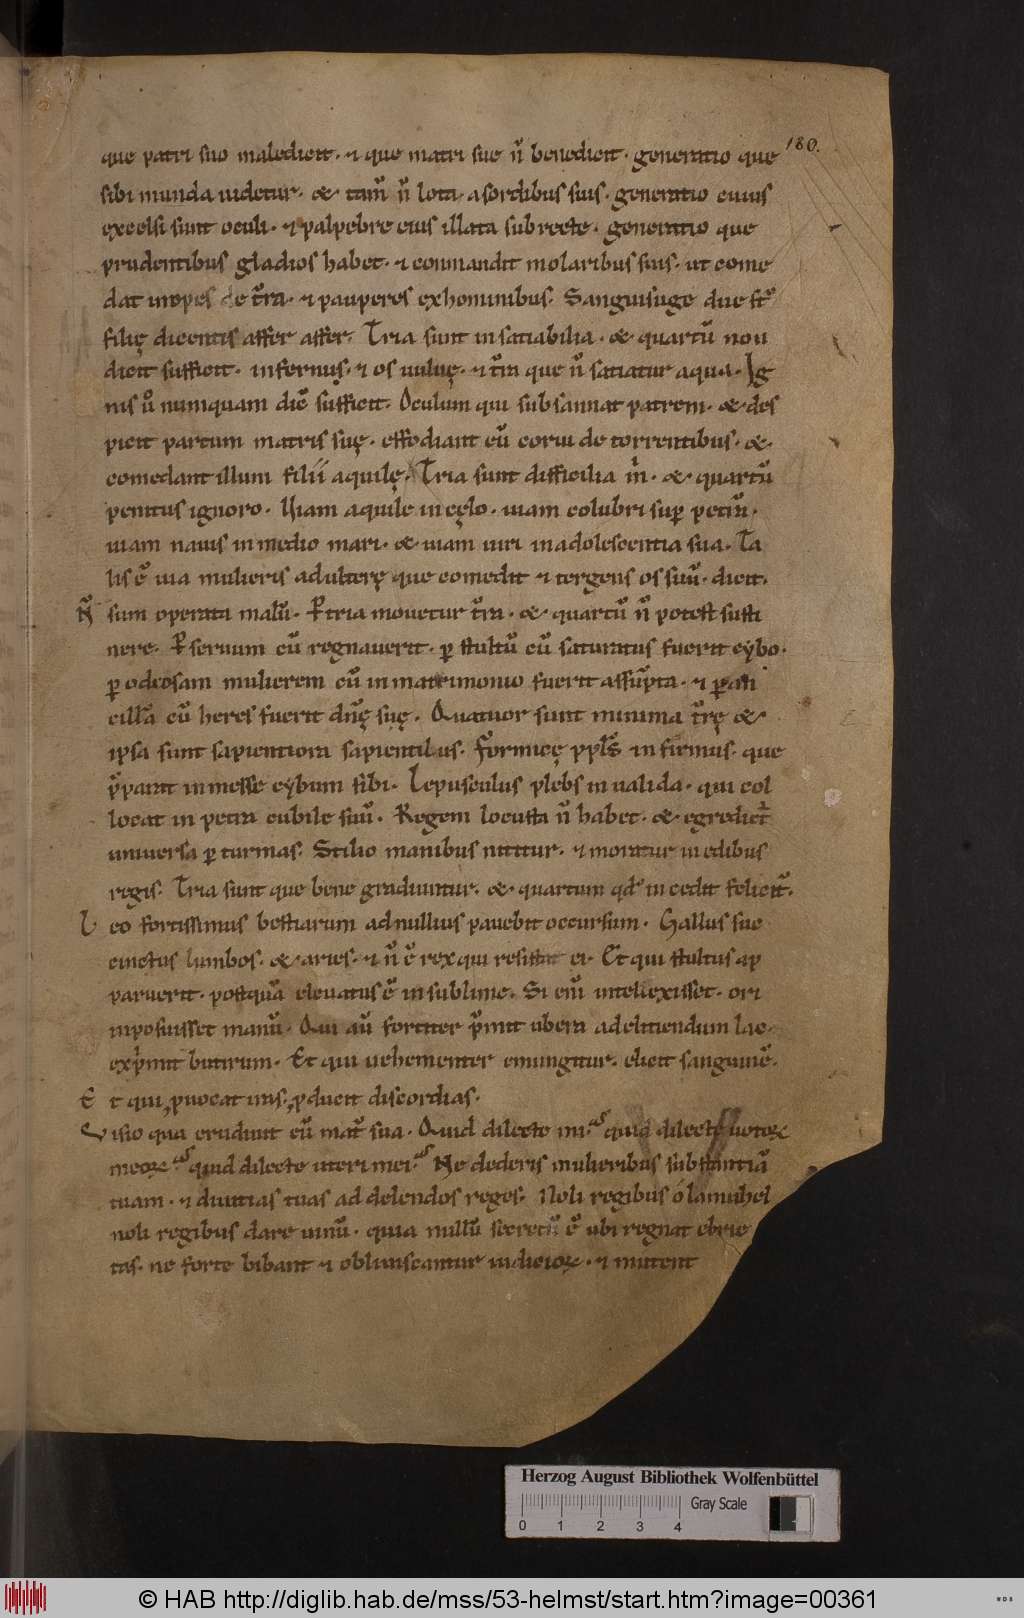 180.
que patri suo maledicit · ⁊ que matri sue n̄ benedicit · generatio que
sibi munda uidetur · & tam̄ n̄ lota · a sordibus suis · generatio cuius
excelsi sunt oculi · ⁊ palpebre eius illata sub recte · generatio que
prudentibus gladios habet · ⁊ conmandit molaribus suis · ut come
dat inopes de t̄ra · ⁊ pauperes ex hominibus. Sanguisuge due st̄
filię dicentis affer affer. Tria sunt insatiabilia · & quartū non
dicit sufficit · infernus · ⁊ os uuluę · ⁊ t̄ra que n̄ satiatur aqua. Ig
nis u͛o numquam dic̄ sufficit. Oculum qui subsannat patrem · & des
picit partum matris suę · effodiant eū corui de torrentibus · &
comedant illum filii aquilę. Tria sunt difficilia m̄ · & quartū
penitus ignoro. Uiam aquile in cęlo · uiam colubri sup̄ petrā ·
uiam nauis in medio mari · & uiam uiri in adolescentia sua. Ta
lis ē uia mulieris adulterę que comedit ⁊ tergens os suū · dicit.
N̄ sum operata malū. P̄ tria mouetur t̄ra · & quartū n̄ potest susti
nere. P̄ seruum cū regnauerit · p̄ stultū cū saturatus fuerit cybo ·
p̄ odiosam mulierem cū in matrimonio fuerit assūpta · ⁊ p̄ an
cillā cū heres fuerit dn̄ę suę. Quatuor sunt minima t̄rę &
ipsa sunt sapientiora sapientibus. Formicę ppl̄s infirmus · que
p̄parat in messe cybum sibi. Lepusculus plebs inualida · qui col
locat in petra cubile suū. Regem locusta n̄ habet · & egredit̄
uniuersa p̄ turmas. Stilio manibus nititur · ⁊ moratur in edibus
regis. Tria sunt que bene gradiuntur · & quartum qd̄ incedit felicit̄.
Leo fortissimus bestiarum ad nullius pauebit occursum. Gallus suc
cinctus lumbos · & aries · ⁊ n̄ ē rex qui resistat ei. Et qui stultus ap
paruerit · postquā eleuatus ē in sublime. Si enī intellexisset · ori
inposuisset manū. Qui aū fortiter p̄mit ubera ad eliciendum lac ·
exp̄mit butirum. Et qui uehementer emungitur · elicit sanguinē.
Et qui ꝓuocat iras · ꝓducit discordias.
Uisio qua erudiuit eū mat̄ sua. Quid dilecte mi? quid dilecte uotoꝝ
meoꝝ? quid dilecte uteri mei? Ne dederis mulieribus substantiā
tuam · ⁊ diuitias tuas ad delendos reges. Noli regibus o lamuhel
noli regibus dare uinū · quia nullū secretū ē ubi regnat ebrie
tas · ne forte bibant ⁊ obliuiscantur iudicioꝝ · ⁊ mutent
Herzog August Bibliothek Wolfenbüttel
Gray Scale
0 1 2 3 4
© HAB http://diglib.hab.de/mss/53-helmst/start.htm?image=00361